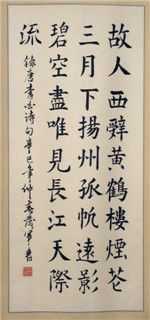 故人西辭黃鶴樓煙花
三月下揚州孤帆遠影
碧空盡唯見長江天際
流
錄唐李白诗句辛巳年仲春書